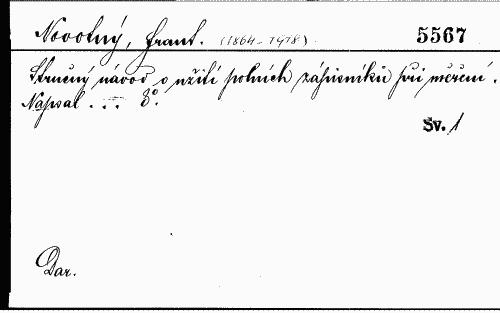 Novotný, Frant. (1864-1918)
5567
Stručný návod o užití polních zápisníků při měření.
Napsal . . . 8°.
Sv. 1
Dar.